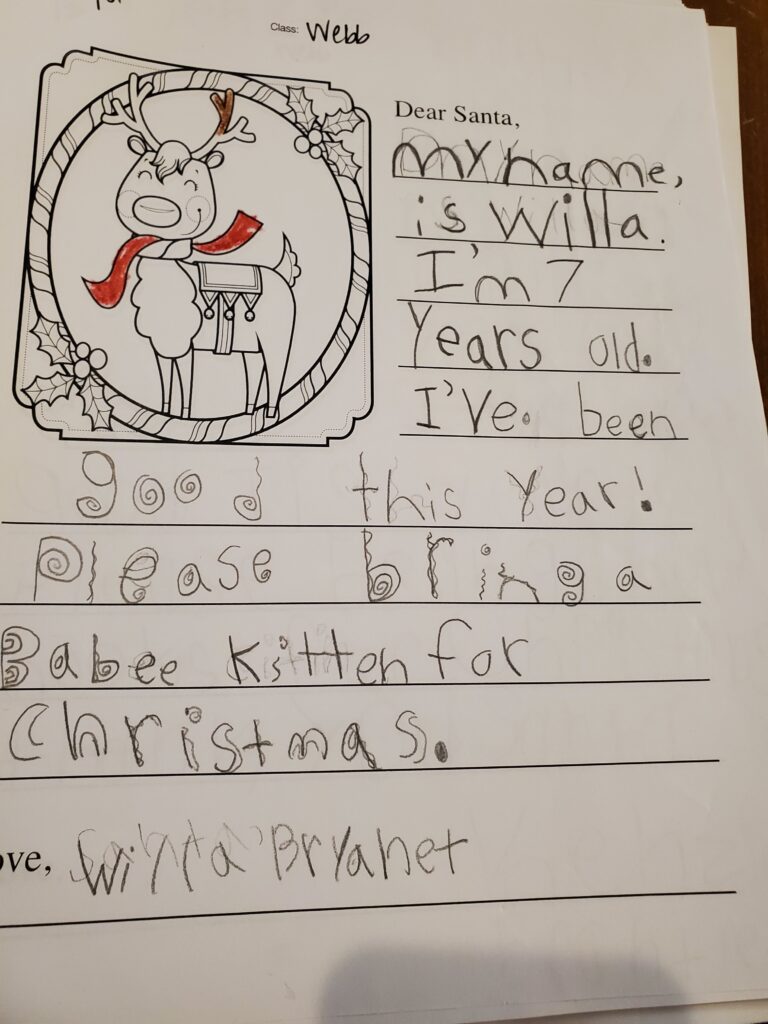 Class: Webb
Dear Santa,
my name,
is Willa.
I'm 7
Years old.
I've. been
good this year!
Please bring a
Babee kitten for
Christmas.
ove, Willa Bryanet